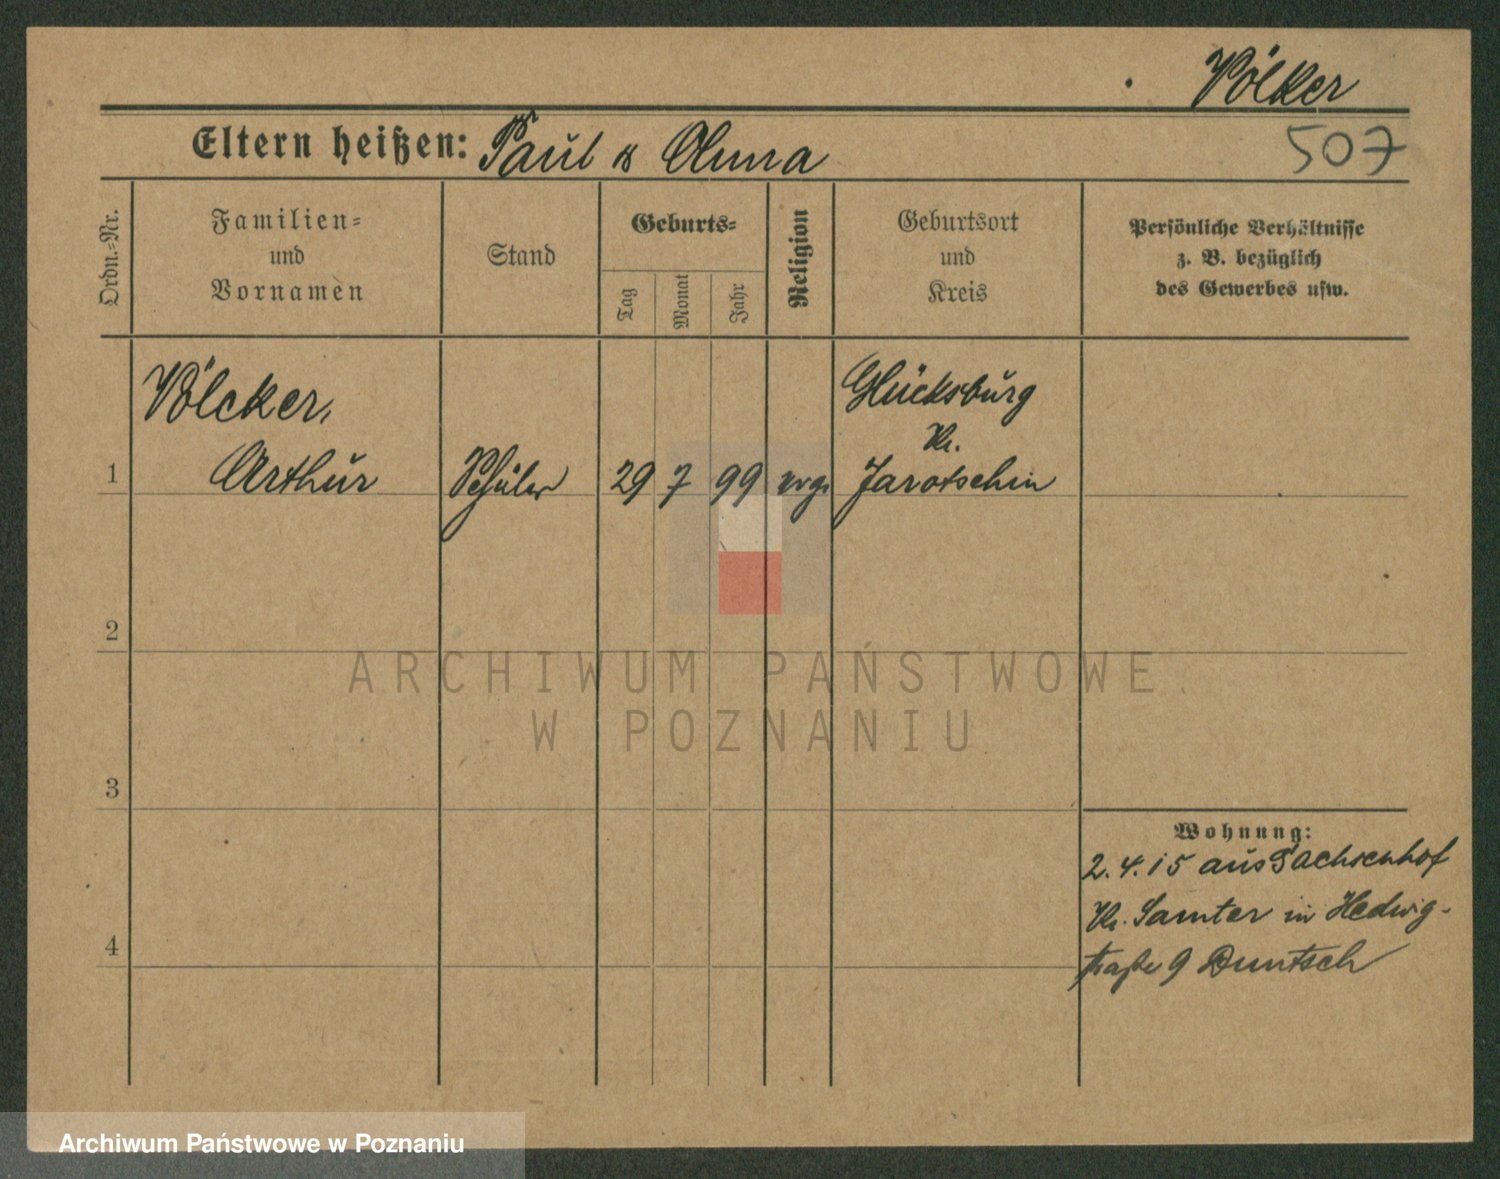 Völker
507
Eltern heißen: Paul & Anna
Ordn.-Nr.
Familien-
und
Vornamen
Stand
Geburts-
Tag
Monat
Jahr
Religion
Geburtsort
und
Kreis
Persönliche Verhältnisse
z. B. bezüglich
des Gewerbes usw.
Völcker,
Glücksburg
Kr.
1 Arthur Schüler 29 7 99 evgl Jarotschin
2
ARCHIWUM PAŃSTWOWE
W POZNANIU
3
Wohnung:
2.4.15 aus Sachsenhof
Kr. Samter in Hedwig-
straße 9 Duntsch
4
Archiwum Państwowe w Poznaniu